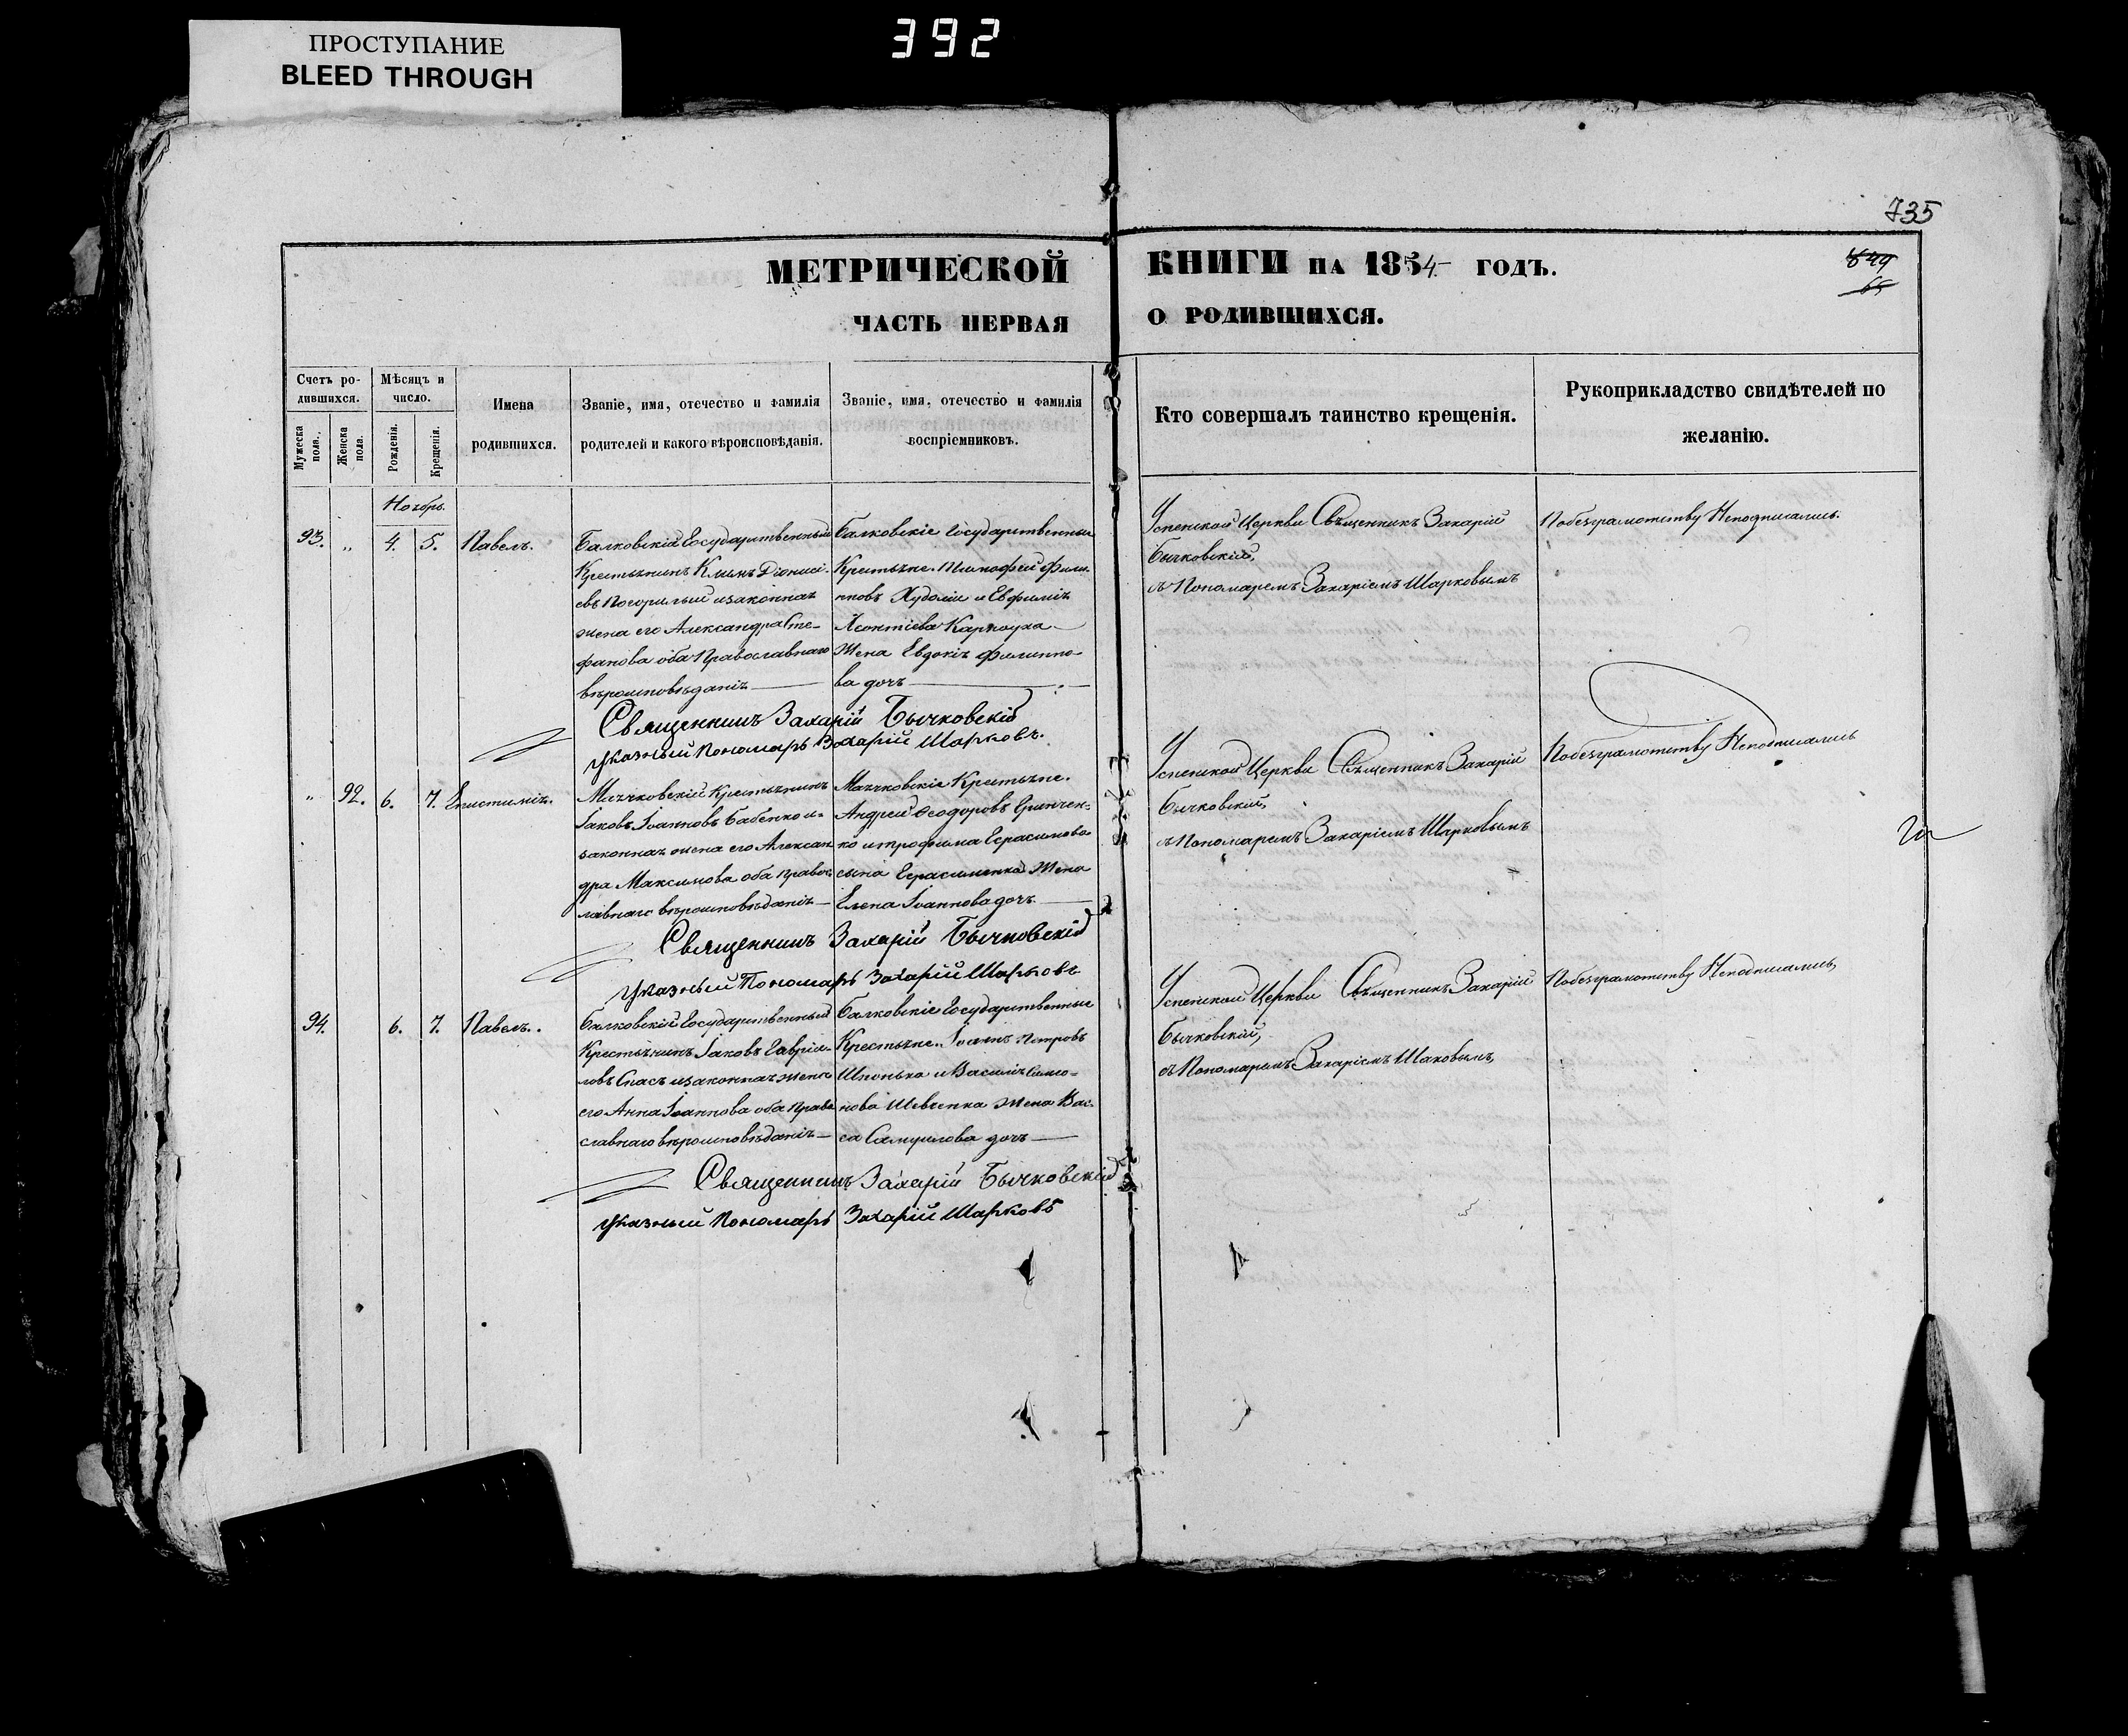 ПРОСТУПАНИЕ
BLEED THROUGH
392
735
МЕТРИЧЕСКОЙ КНИГИ НА 1854 ГОДЪ.
849
65
ЧАСТЬ ПЕРВАЯ О РОДИВШИХСЯ.
Счетъ ро-
дившихся.
Мѣсяцъ и
число.
Мужеска
пола.
Женска
пола.
Рожденія.
Крещенія.
Имена
родившихся.
Званіе, имя, отечество и фамилія
родителей и какого вѣроисповѣданія.
Званіе, имя, отечество и фамилія
воспріемниковъ.
Кто совершалъ таинство крещенія.
Рукоприкладство свидѣтелей по
желанію.
Ноябрь.
93. „ 4. 5. Павелъ.
Балковскій Государственный
Крестьянинъ Діонисі-
евъ Погорилый и законная
жена его Александра Сте-
фанова оба Православнаго
вѣроисповѣданія
Балковскіе Государственные
Крестьяне Тимофей Фили-
повъ Худолій и Евфимія
Леонтіева
Жена Евдокія Филиппо-
ва дочь
Успенской Церкви Священникъ Захарій
Бычковскій,
съ Пономаремъ Захаріемъ Шарковымъ
По безграмотству Неподписались.
Священникъ Захарій Бычковскій
указный Пономарь Захарій Шарковъ.
„ 92. 6. 7. Епистимія.
Мачковскій Крестьянинъ
Іаковъ Іоанновъ Бабенко и
законная жена его Алексан
дра Максимова оба Правос
лавнаго вѣроисповѣданія
Мачковскіе Крестьяне.
Андрей Феодоровъ Гринчен-
ко и трофима Герасимова
сына Герасименка Жена
Елена Іоаннова дочь
Успенской Церкви Священникъ Захарій
Бычковскій,
съ Пономаремъ Захаріемъ Шарковымъ
По безграмотству Неподписались
Священникъ Захарій Бычковскій
указный Пономарь Захарій Шарьковъ
94. 6. 7. Павелъ.
Балковскій Государственный
Крестьянинъ Іаковъ Гавріи-
ловъ Спасъ и законная жена
его Анна Іоаннова оба Право
славнаго вѣроисповѣданія
Балковскіе Государственные
Крестьяне. Іоаннъ Петровъ
Шпонька и Василія Симо-
нова Шевченка Жена Вас-
са Самуилова дочь
Успенской Церкви Священникъ Захарій
Бычковскій,
съ Пономаремъ Захаріемъ Шаковымъ,
По безграмотству Неподписались,
Священникъ Захарій Бычковскій
указный Пономарь Захарій Шарковъ